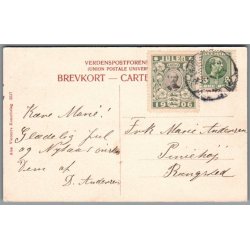 VERDENSPOSTFORENIN
UNION POSTALE UNIVERS
BREVKORT — CARTE
JULEN
1906
Kære Marie!
Glædelig Jul
og Nytaar ønskes
Dem af
D. Andersen
Frk Marie Andersen
Piniehøj
Rungsted